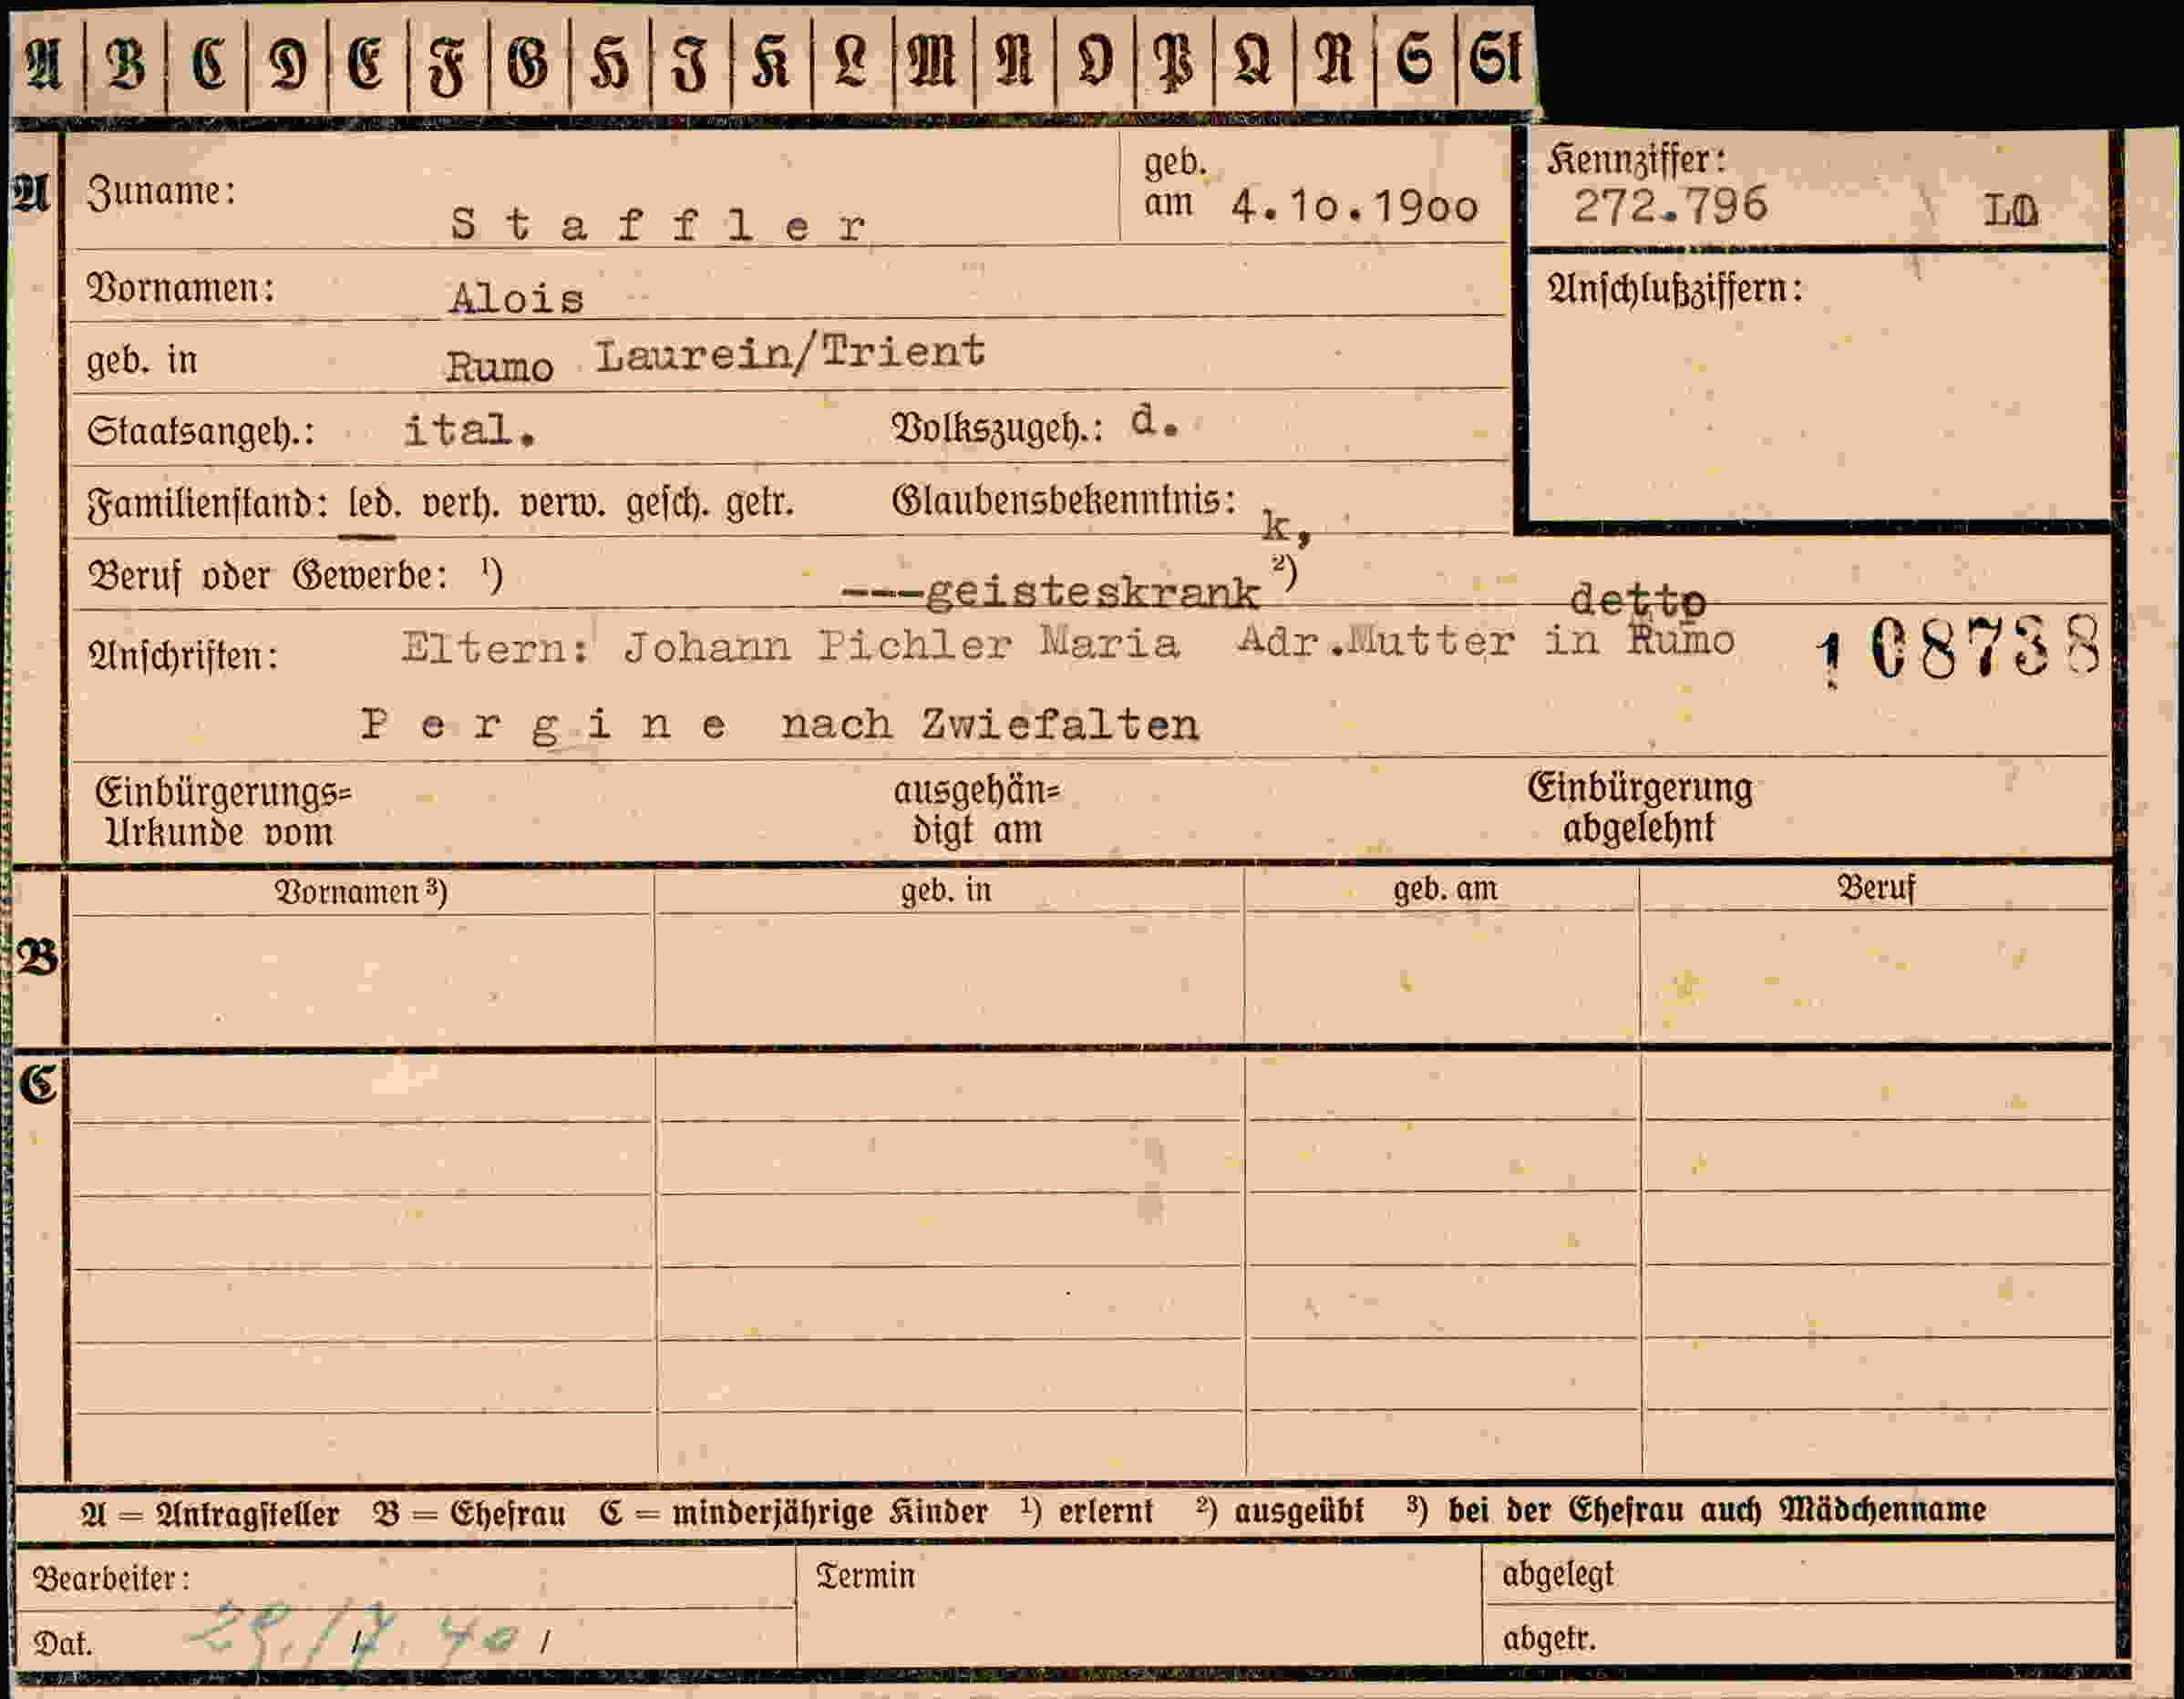 A B C D E F G H I K L M N O P Q R S St
A Zuname: Staffler geb. am 4.10.1900 Kennziffer: 272.796
Vornamen: Alois Anschlußziffern:
geb. in Rumo Laurein/Trient
Staatsangeh.: ital. Volkszugeh.: d.
Familienstand: led. verh. verw. gesch. getr. Glaubensbekenntnis: k,
Beruf oder Gewerbe: ¹) ---geisteskrank ²) detto
Anschriften: Eltern: Johann Pichler Maria Adr.Mutter in Rumo 108738
Pergine nach Zwiefalten
Einbürgerungs= ausgehän= Einbürgerung
Urkunde vom digt am abgelehnt
Vornamen ³) geb. in geb. am Beruf
B
C
A = Antragsteller B = Ehefrau C = minderjährige Kinder ¹) erlernt ²) ausgeübt ³) bei der Ehefrau auch Mädchenname
Bearbeiter: Termin abgelegt
Dat. 29./7.40/ abgetr.